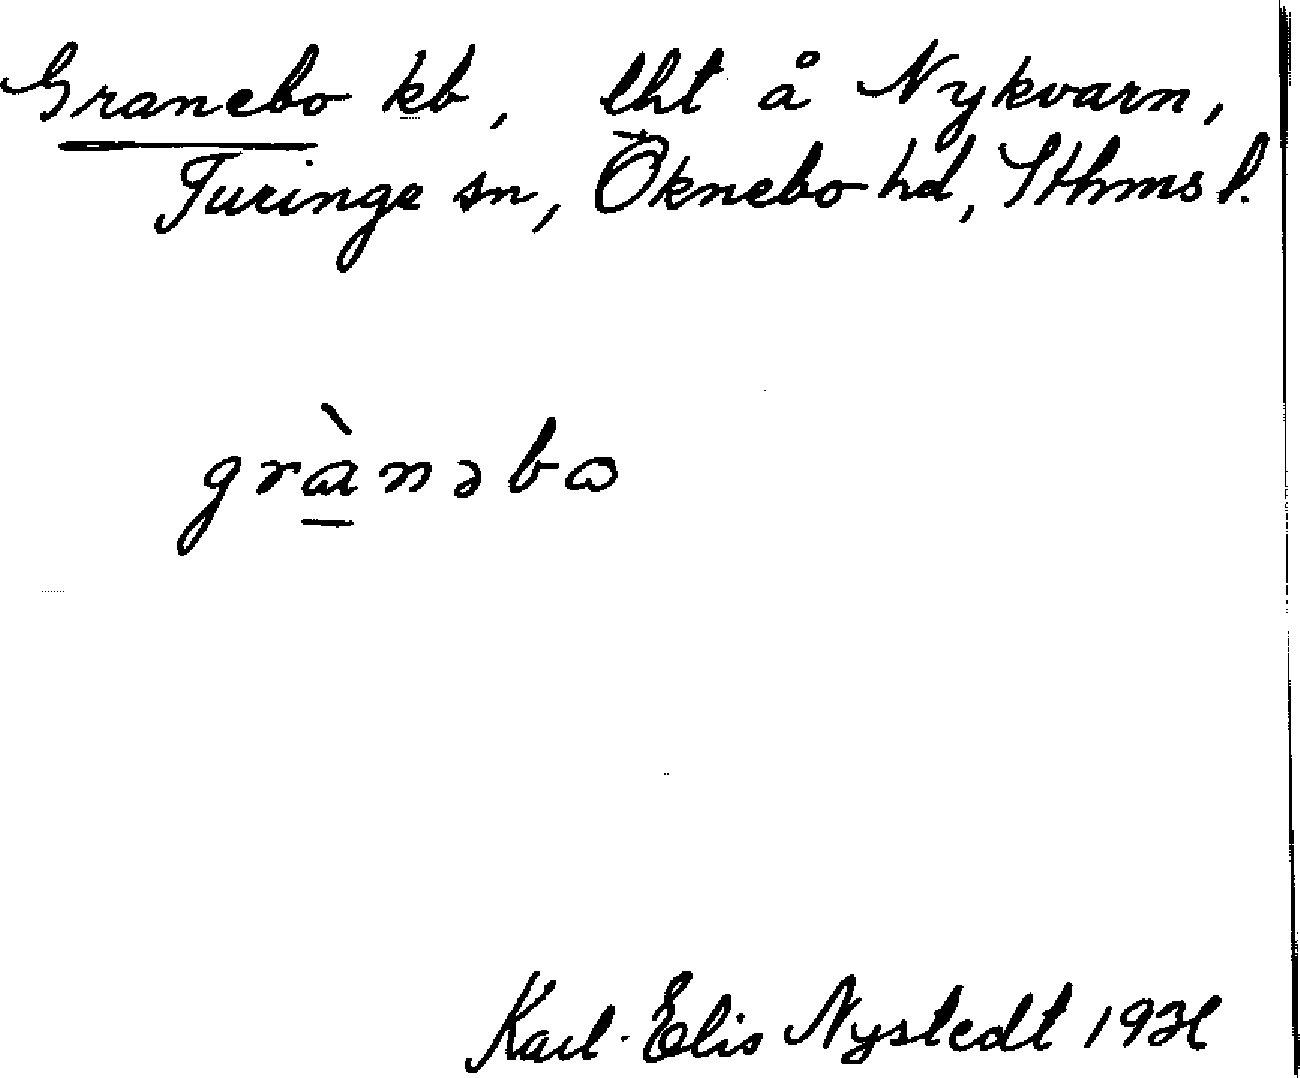 Granebo kb, lht å Nykvarn,
Turinge sn, Öknebo hd, Sthms l.
grànəbɷ
Karl-Elis Nystedt